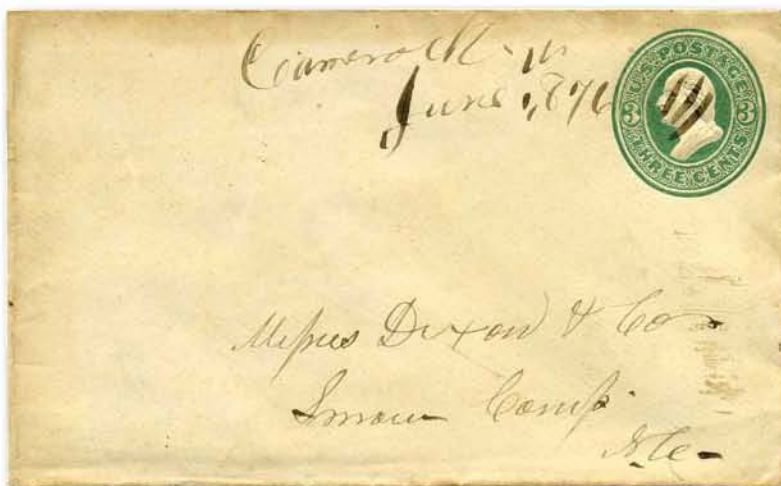 June 1, 1876
U.S. POSTAGE
3 3
THREE CENTS
Messrs Dixon & Co
Snow Camp
N.C.